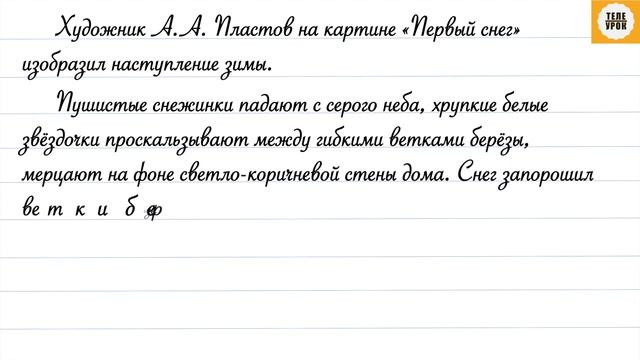 ТЕЛЕ
УРОК
Художник А.А. Пластов на картине «Первый снег»
изобразил наступление зимы.
Пушистые снежинки падают с серого неба, хрупкие белые
звёздочки проскальзывают между гибкими ветками берёзы,
мерцают на фоне светло-коричневой стены дома. Снег запорошил
ветки